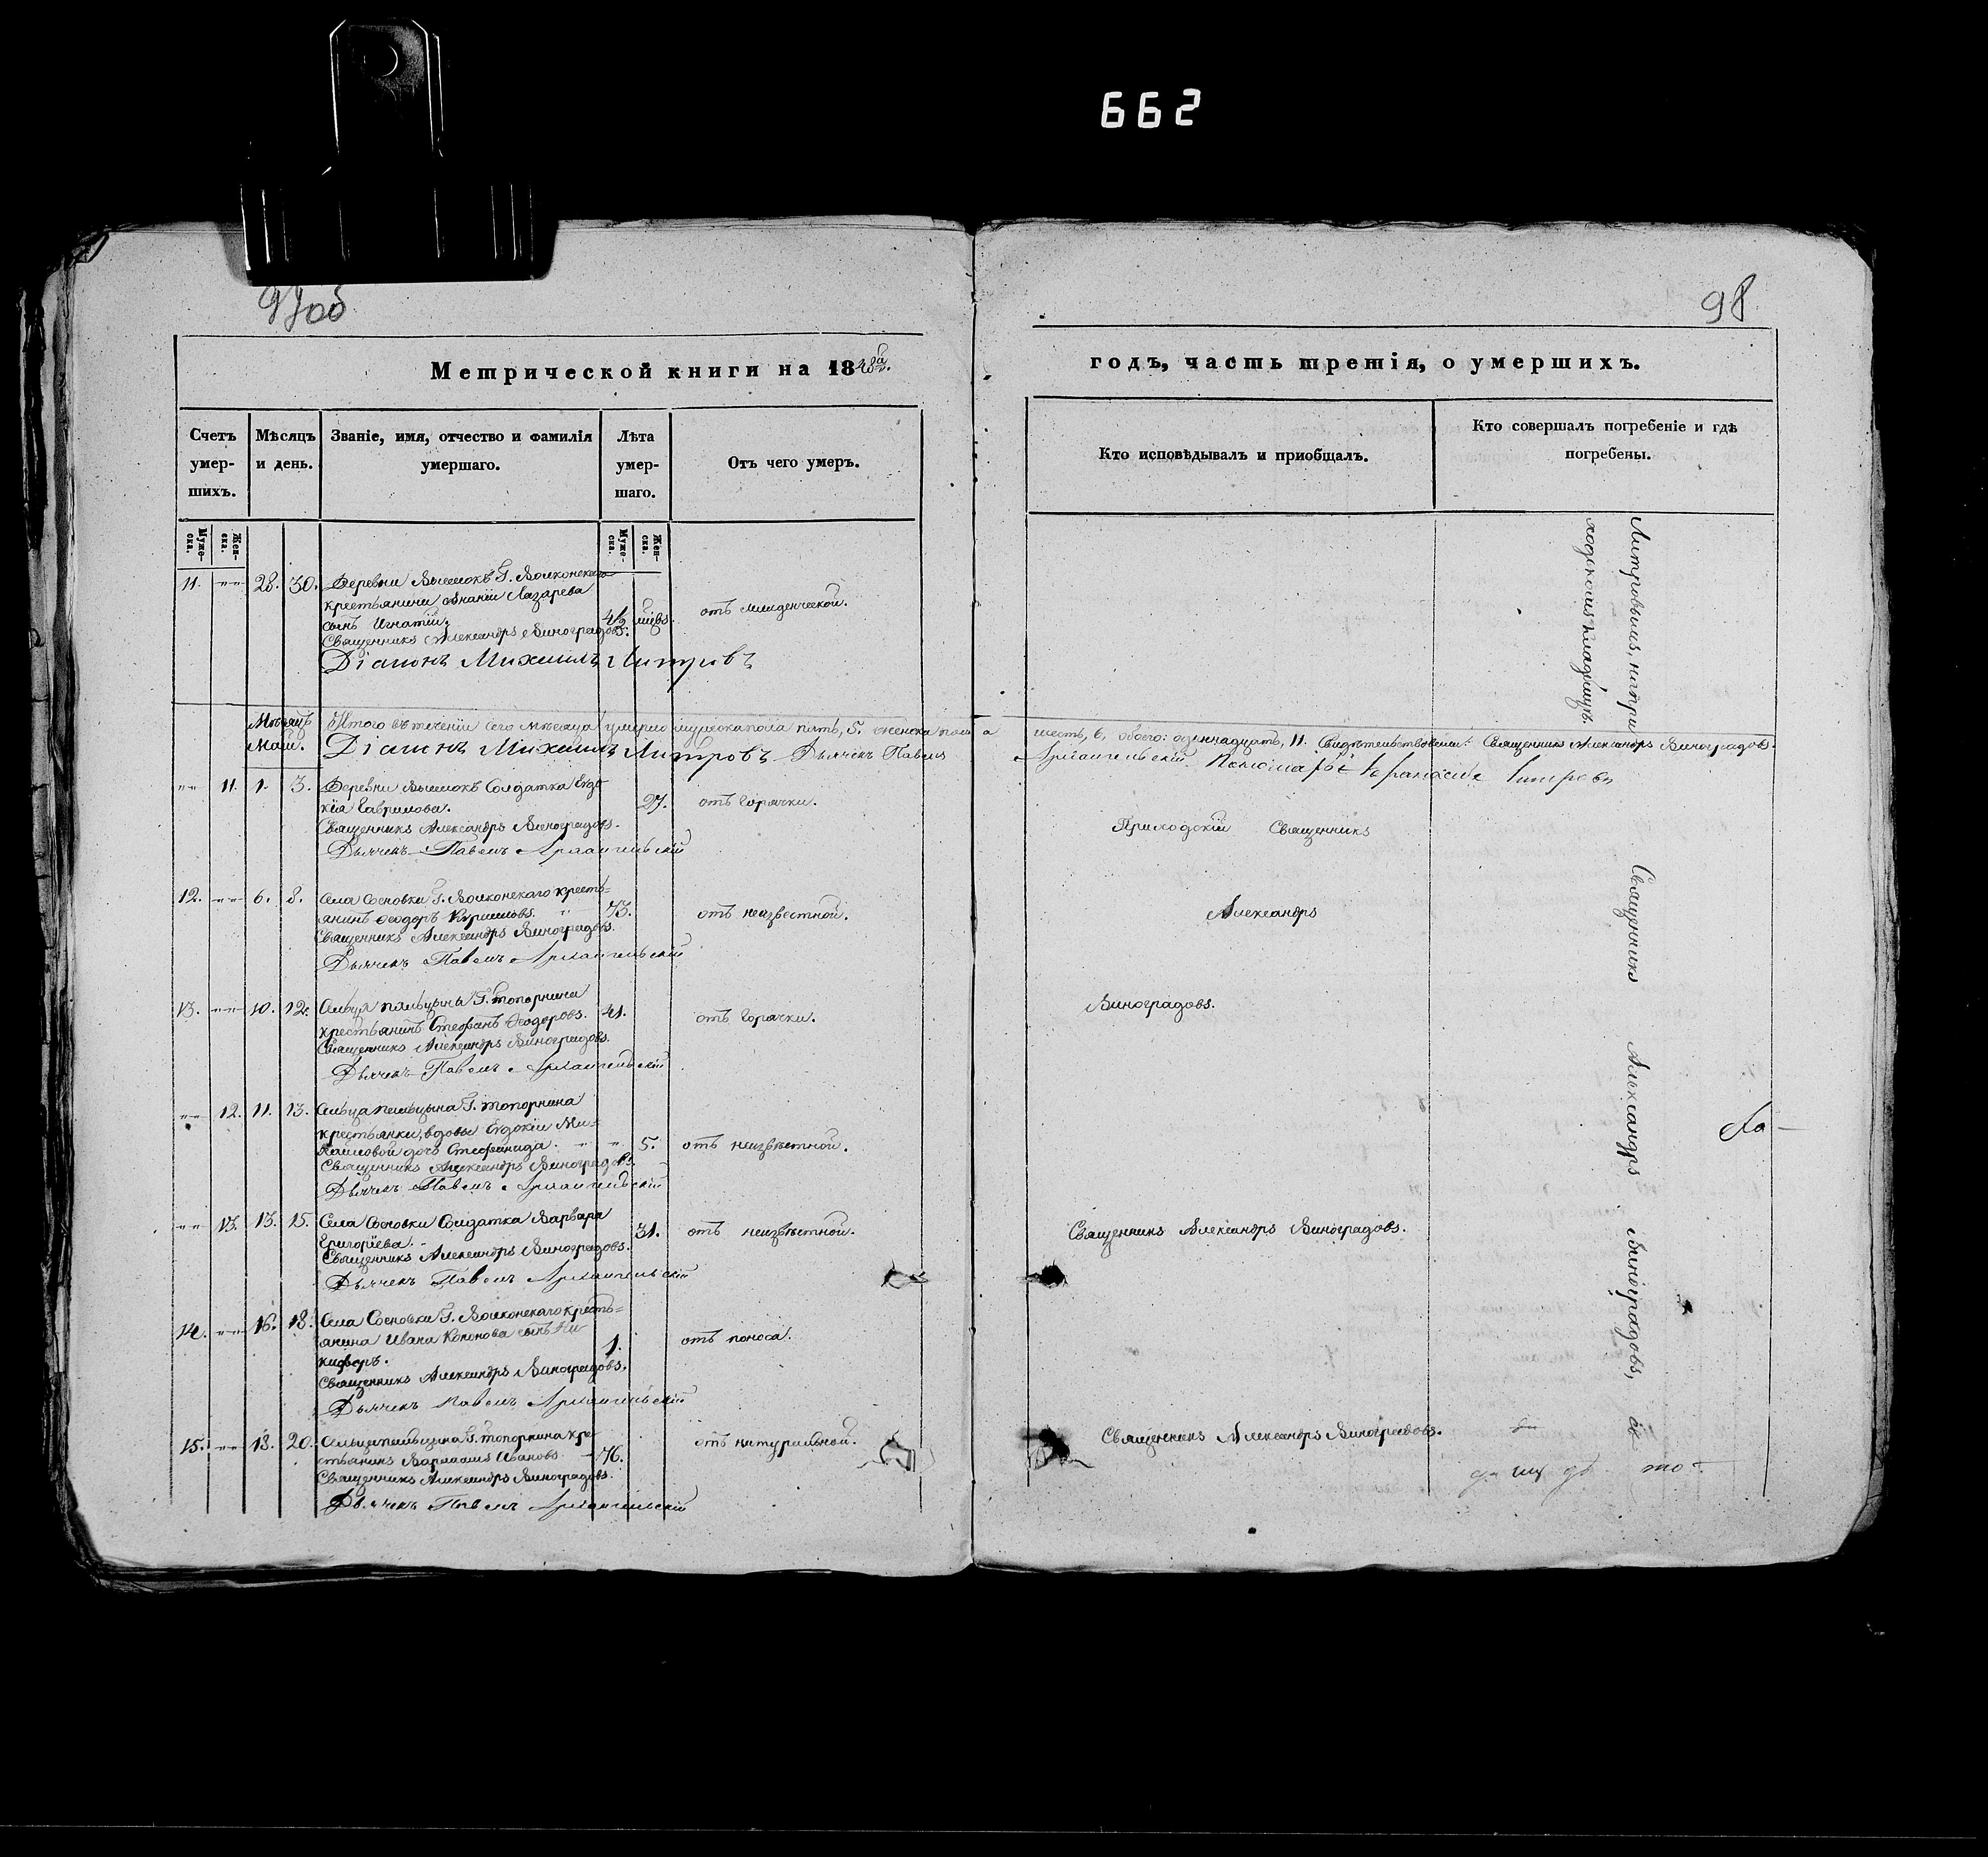 662
97об
98
Метрической книги на 1848й.
годъ, часть третія, о умершихъ.
Счетъ умер-
шихъ.
Мѣсяцъ
и день.
Званіе, имя, отчество и фамилія
умершаго.
Лѣта
умер-
шаго.
Отъ чего умеръ.
Кто исповѣдывалъ и приобщалъ.
Кто совершалъ погребеніе и гдѣ
погребены.
Муже-
ска.
Жен-
ска.
Муже-
ска.
Жен-
ска.
11. "" 28. 30. Деревни Г. Волконскаго
крестьянина Ананіи Лазарева
сынъ Игнатій. отъ младенческой.
Священникъ Александръ Виноградовъ.
Діаконъ Михаилъ
Мѣсяцъ
Май.
Итого въ теченіи сего мѣсяца умерло мужеска пола пять, 5. женска пола
шесть, 6, обоего: одиннадцать, 11. Свидѣтельствовали: Священникъ Александръ Виноградовъ.
Діаконъ Михаилъ Дьячекъ Павелъ
Архангельскій
"" 11. 1. 3. Деревни Солдатка Евдо
кія Гаврилова. 27. отъ горячки.
Священникъ Александръ Виноградовъ.
Дьячекъ Павелъ Архангельскій
Приходскій Священникъ
12. "" 6. 8. Села Сосновки Г. Волконскаго кресть=
янинъ Ѳеодоръ 73. отъ неизвестной.
Священникъ Александръ Виноградовъ.
Дьячекъ Павелъ Архангельскій
Александръ
13. "" 10. 12. Сельца Пальцына Г. Топорнина
крестьянинъ Стефанъ Ѳеодоровъ. 41. отъ горячки.
Священникъ Александръ Виноградовъ.
Дьячекъ Павелъ Архангельскій
Виноградовъ.
"" 12. 11. 13. Сельца Пальцына Г. Топорнина
крестьянки, вдовы Евдокіи Ми=
хайловой дочь Стефанида. " " 5. отъ неизвѣстной.
Священникъ Александръ Виноградовъ.
Дьячекъ Павелъ Архангельскій
"" 13. 13. 15. Села Сосновки Солдатка Варвара
Григоріева. 31. отъ неизвѣстной.
Священникъ Александръ Виноградовъ.
Дьячекъ Павелъ Архангельскій
Священникъ Александръ Виноградовъ.
14. "" 16. 18. Села Сосновки Г. Волконскаго кресть=
янина Ивана Кононова сынъ Ни
кифоръ. 1. отъ поноса.
Священникъ Александръ Виноградовъ.
Дьячекъ Павелъ Архангельскій
15. "" 18. 20. Сельца Пальцына Г. Топорнина кре
стьянинъ Варлаамъ Ивановъ 76. отъ натуральной.
Священникъ Александръ Виноградовъ.
Дьячекъ Павелъ Архангельскій
Священникъ Александръ Виноградовъ.
ходскомъ кладбищѣ.
Священникъ Александръ Виноградовъ,